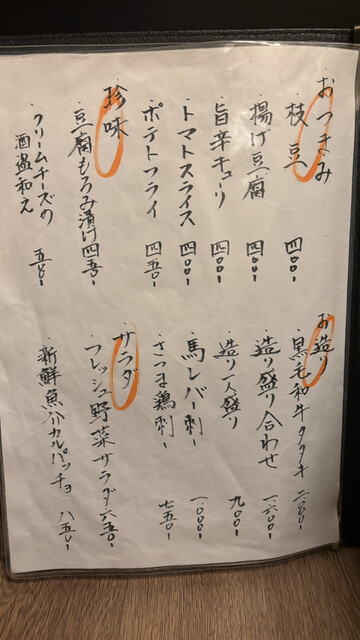 おつまみ
・枝豆 四〇〇-
・揚げ豆腐 四〇〇-
・旨辛キューリ 四〇〇-
・トマトスライス 四〇〇-
・ポテトフライ 四五〇-
珍味
・豆腐もろみ漬け 四五〇-
・クリームチーズの
酒盗和え 五五〇-
お造り
・黒毛和牛タタキ 二、〇〇〇-
・造り盛り合わせ 一、六〇〇-
・造り一人盛り 九〇〇-
・馬レバー刺 一、〇〇〇-
・さつま鶏刺 七五〇-
サラダ
・フレッシュ野菜サラダ 六五〇-
・新鮮魚介カルパッチョ 八五〇-